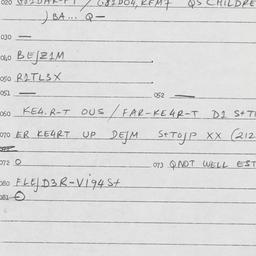 020 / G81D04, KFM7 QS CHILDRE
) BA... Q-
030 —
040 BEJZ1M
050 R1TL3X
051 —
052 —
060 KE4.R-T OUS / FAR-KE4R-T D1 S+TI
070 ER KE4RT UP DEJM S+TOJP XX (212
072 O
073 QNOT WELL EST
080 FLEJD3R-V194S+
081